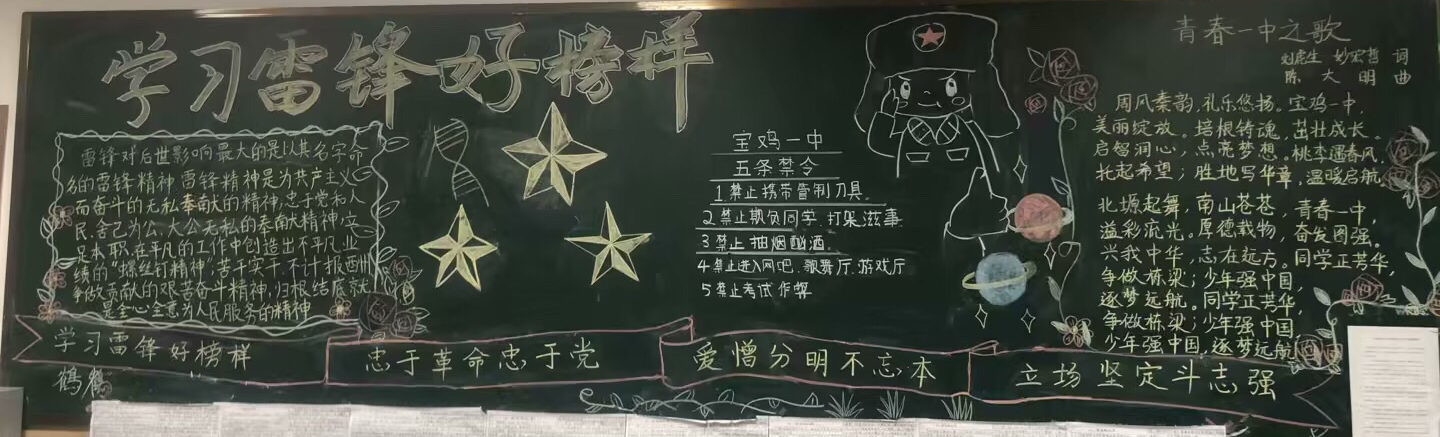 学习雷锋好榜样
雷锋对后世影响最大的是以其名字命
名的雷锋精神 雷锋精神是为共产主义
而奋斗的无私奉献的精神,忠于党和人
民、舍己为公、大公无私的奉献精神,立
足本职、在平凡的工作中创造出不平凡业
绩的"螺丝钉精神",苦干实干、不计报酬
争做贡献的艰苦奋斗精神,归根结底就
是全心全意为人民服务的精神
宝鸡一中
五条禁令
1.禁止携带管制刀具.
2.禁止欺负同学 打架滋事.
3禁止抽烟酗酒.
4禁止进入网吧.歌舞厅.游戏厅
5禁止考试作弊
青春一中之歌
词
陈大明 曲
周风秦韵,礼乐悠扬。宝鸡一中,
美丽绽放。培根铸魂,茁壮成长。
启智润心,点亮梦想。桃李遇春风,
托起希望;胜地写华章,温暖启航
北塬起舞,南山苍苍,青春一中,
溢彩流光。厚德载物,奋发图强。
兴我中华,志在远方。同学正芳华,
争做栋梁;少年强中国,
逐梦远航。同学正芳华,
争做栋梁;少年强中国,
少年强中国,逐梦远航
学习雷锋好榜样
忠于革命忠于党
爱憎分明不忘本
立场坚定斗志强
鹤鹤